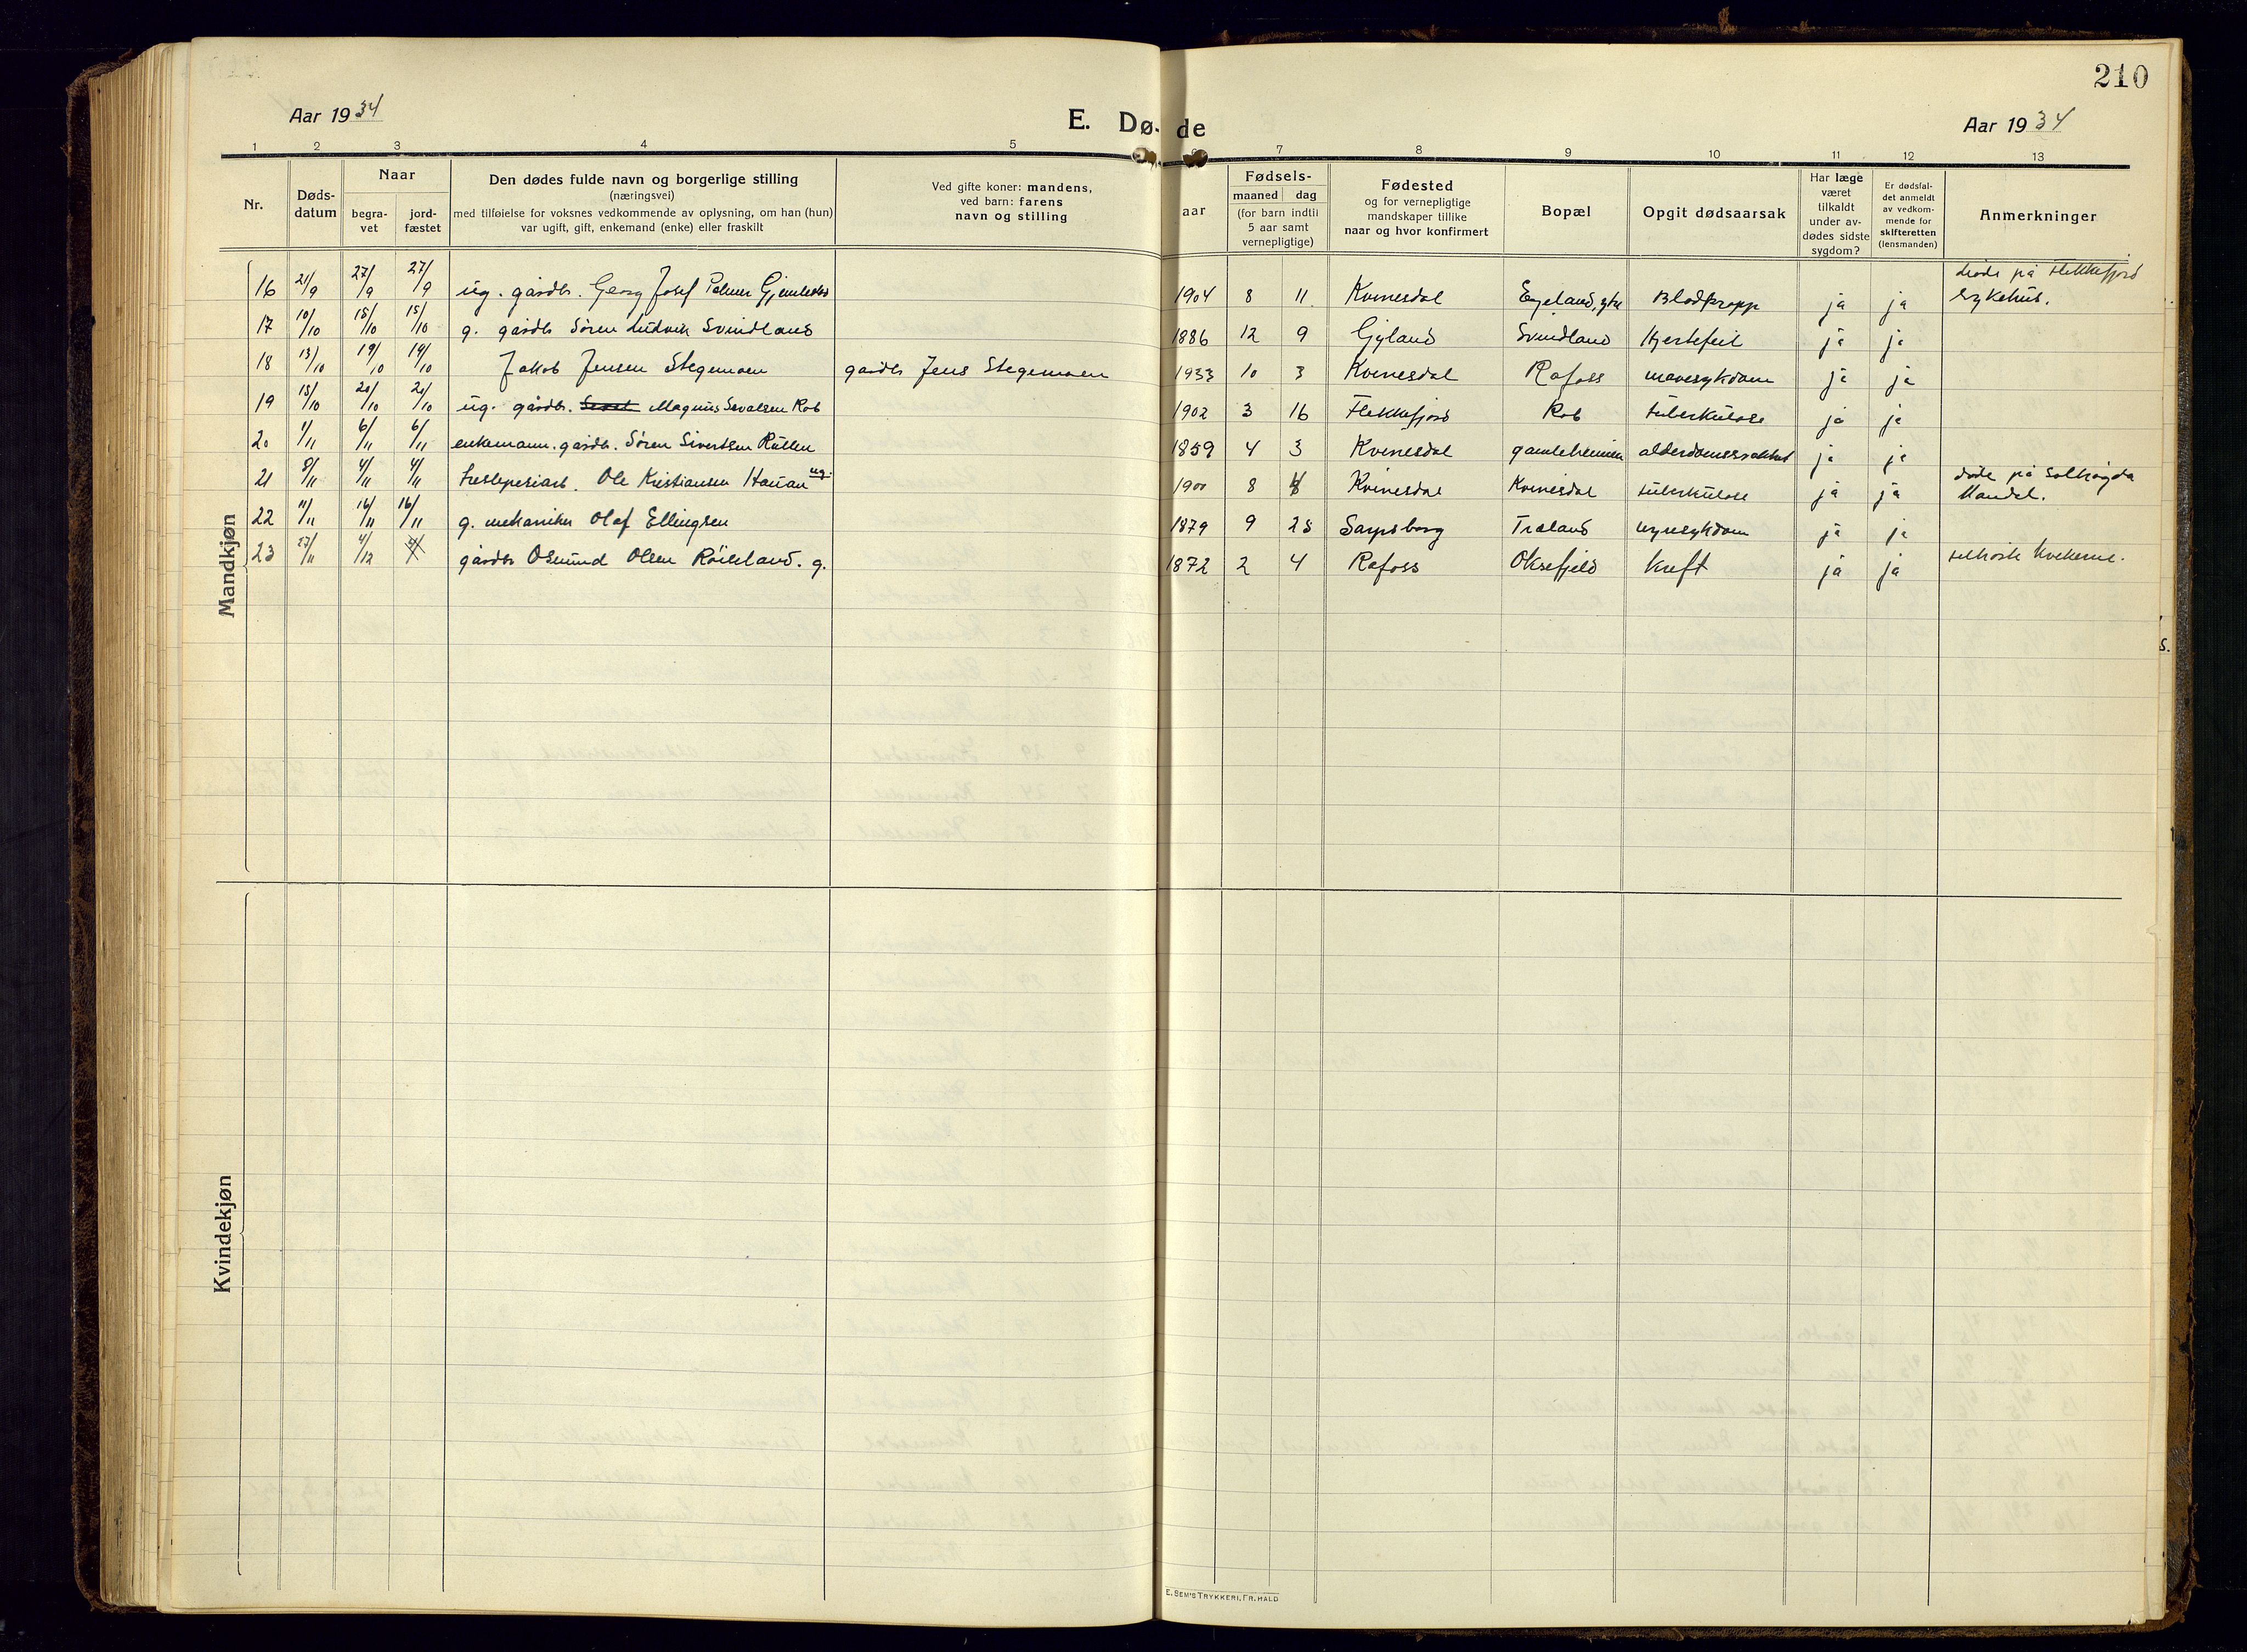 210
Aar 1934 E. Dø- de Aar 1934
1 2 3 4 5 6 7 8 9 10 11 12 13
Nr.
Døds-
datum
Naar
begra-
vet
jord-
fæstet
Den dødes fulde navn og borgerlige stilling
(næringsvei)
med tilføielse for voksnes vedkommende av oplysning, om han (hun)
var ugift, gift, enkemand (enke) eller fraskilt
Ved gifte koner: mandens,
ved barn: farens
navn og stilling
aar
Fødsels-
maaned dag
(for barn indtil
5 aar samt
vernepligtige)
Fødested
og for vernepligtige
mandskaper tillike
naar og hvor konfirmert
Bopæl
Opgit dødsaarsak
Har læge
været
tilkaldt
under av-
dødes sidste
sygdom?
Er dødsfal-
det anmeldt
av vedkom-
mende for
skifteretten
(lensmanden)
Anmerkninger
Mandkjøn
16 21/9 27/9 27/9 ug. gårdbr. Georg Josef Palmer 1904 8 11 Kvinesdal ja ja døde på Flekkefjord
sykehus.
17 10/10 15/10 15/10 g. gårdbr Sören Ludvik Svindland 1886 12 9 Gyland Svindland Hjertefeil ja ja
18 13/10 19/10 19/10 Jakob Jensen Stegemoen gårdbr Jens Stegemoen 1933 10 3 Kvinesdal Rafoss mavesykdom ja ja
19 15/10 20/10 20/10 ug. gårdbr. Magnus Sivalsen Rob 1902 3 16 Flekkefjord Rob tuberkulose ja ja
20 1/11 6/11 6/11 enkemann. gårdbr. Sören Sivertsen 1859 4 3 Kvinesdal gamleheimen ja ja
21 8/11 4/11 4/11 Ole Kristiansen Hauan ug. 1900 8 Kvinesdal Kvinesdal tuberkulose ja ja døde på Solhøgda
Mandal.
22 11/11 16/11 16/11 g. mekaniker Olaf Ellingsen 1879 9 28 Sarpsborg Træland nyresykdom ja ja
23 27/11 4/12 gårdbr Osmund Olsen Röiseland. g. 1872 2 4 Rafoss Oksefjeld kreft ja ja tilhørte kvekerne.
Kvindekjøn
E. SEM'S TRYKKERI, FR. HALD